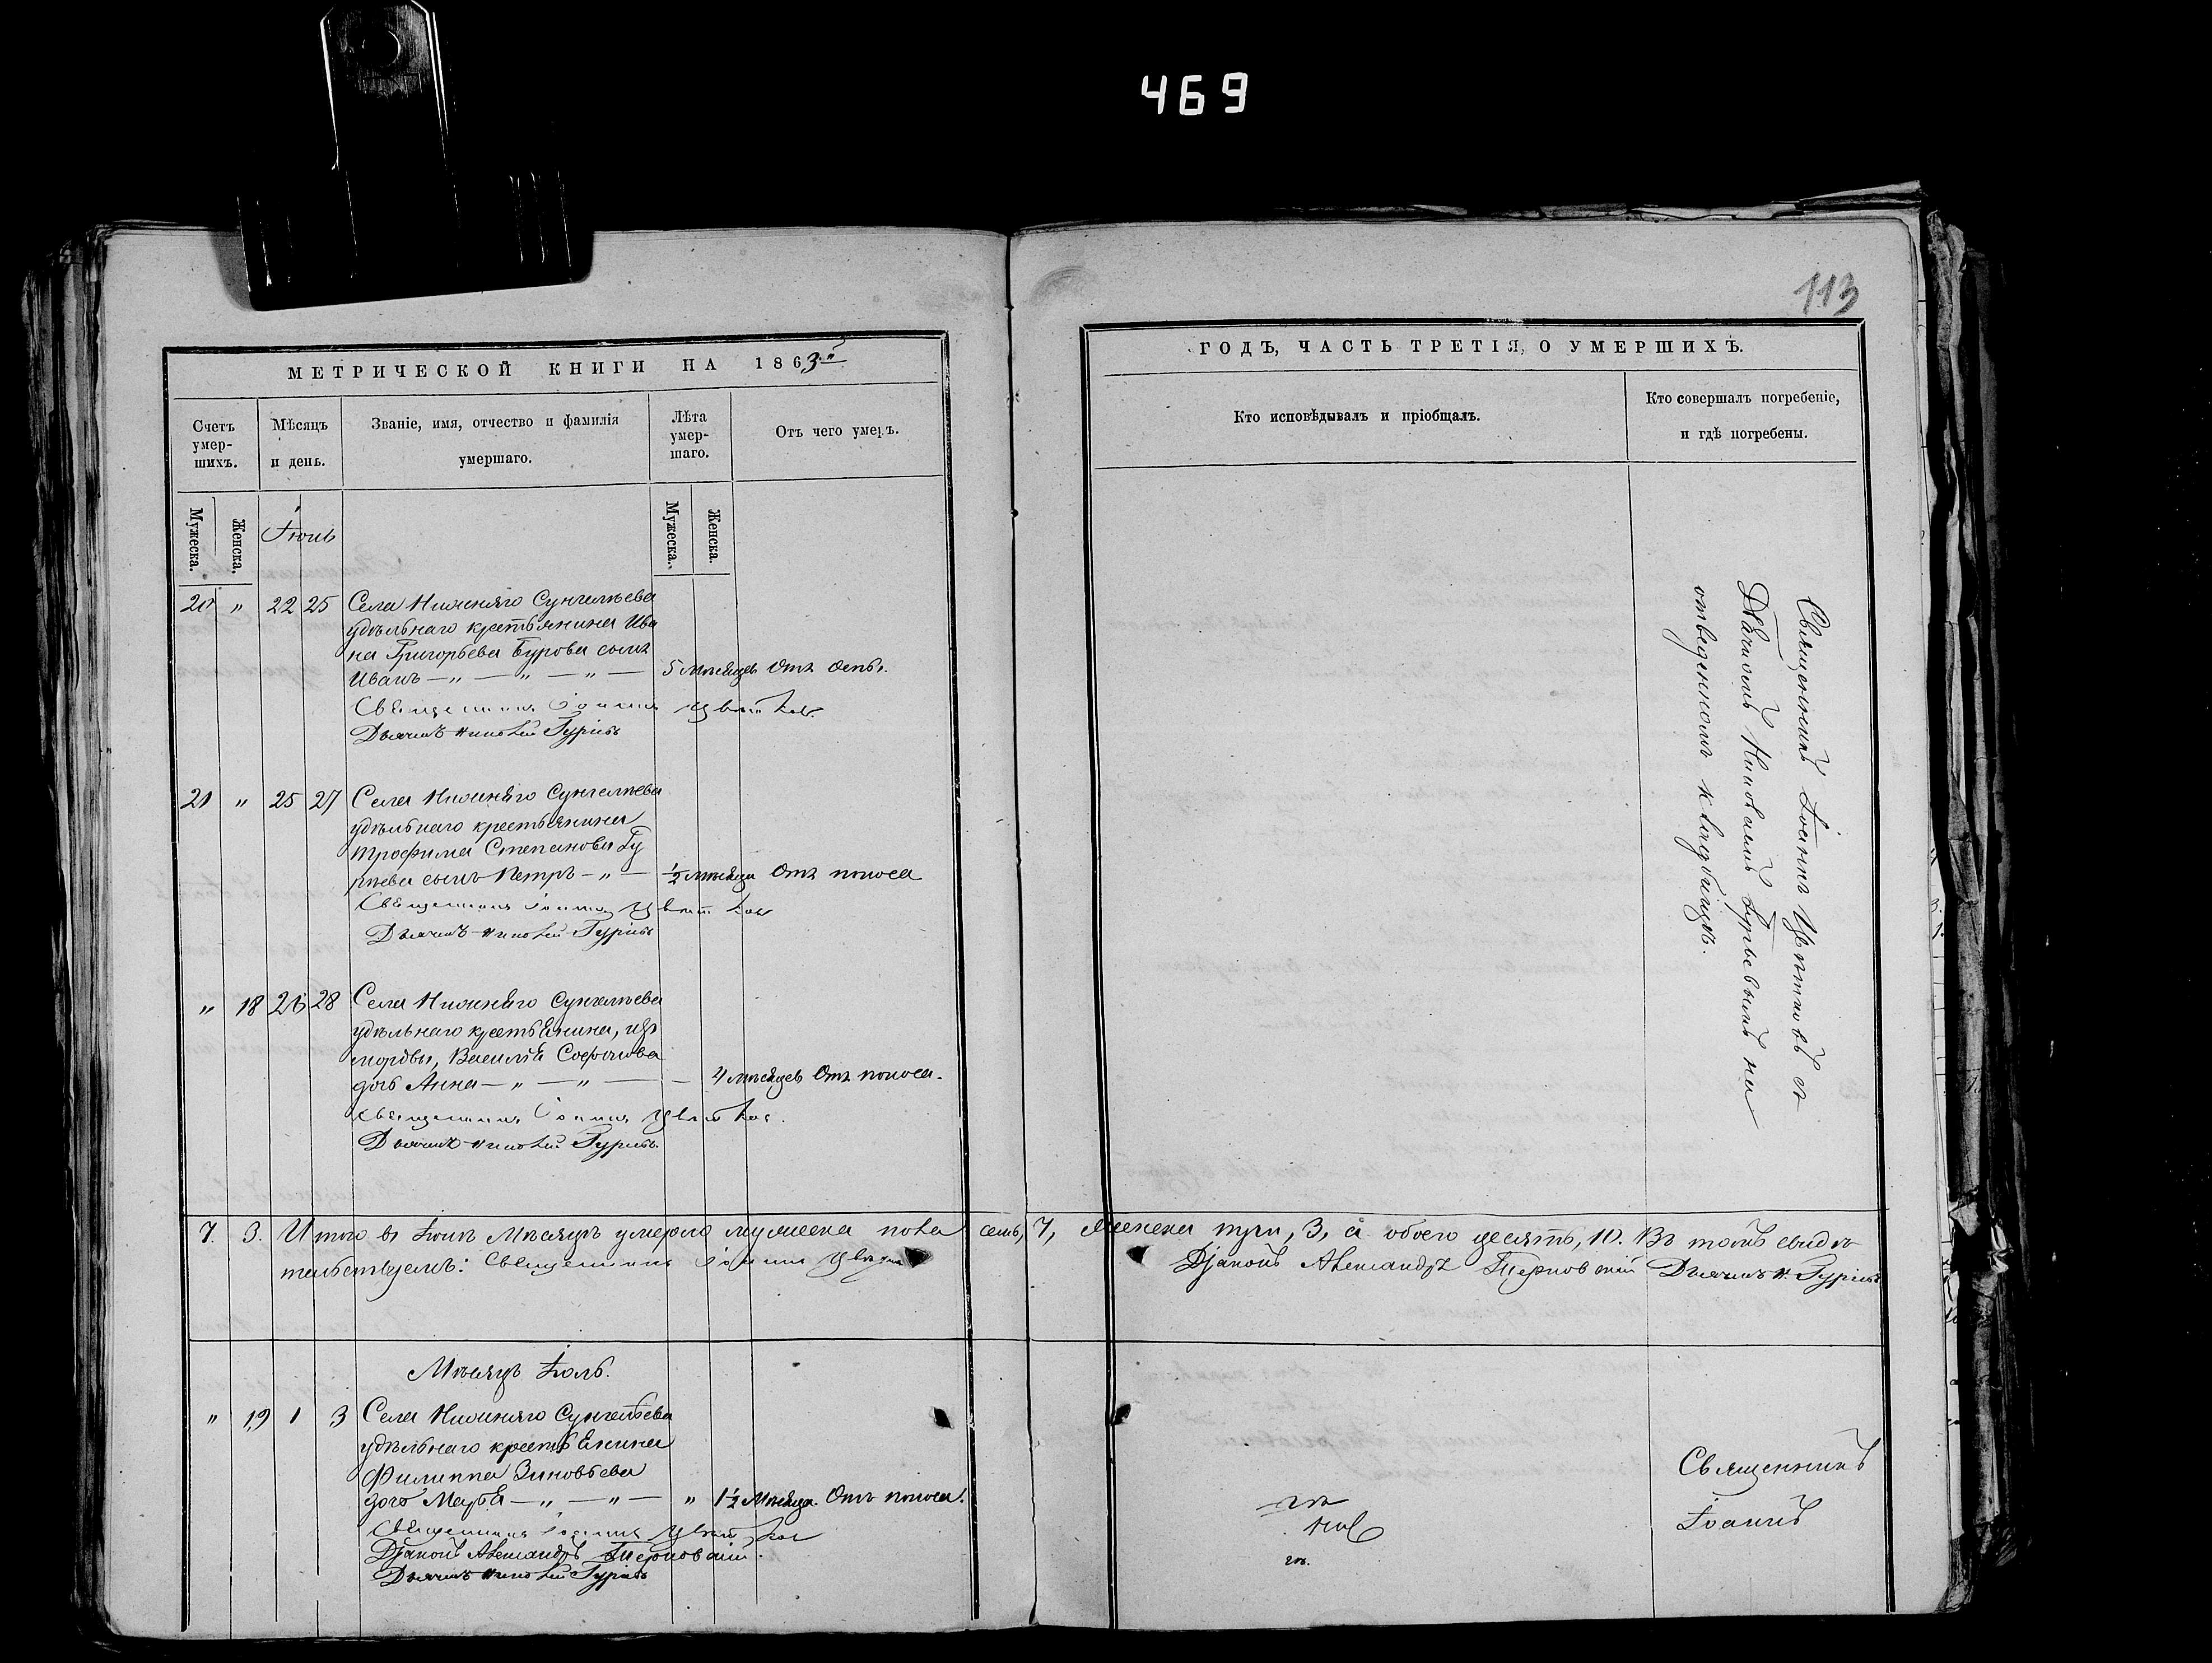 469
113
МЕТРИЧЕСКОЙ КНИГИ НА 1863й
Счетъ умер-шихъ.
Мѣсяцъ и день.
Званіе, имя, отчество и фамилія умершаго.
Лѣта умер-шаго.
Отъ чего умеръ.
Мужеска.
Женска.
Іюнь
Мужеска.
Женска.
20 " 22 25 Села Нижняго Сунгелѣева
удѣльнаго крестьянина Ива
на Григорьева Бурова сынъ
Иванъ — " — " — " — 5 мѣсяцевъ Отъ оспы.
Священникъ Іоаннъ Цвѣтков
Дьячекъ Николай Гурьевъ
21 " 25 27 Села Нижняго Сунгелѣева
удѣльнаго крестьянина
Трофима Степанова Гу
рьева сынъ Петръ — " — 1/2 мѣсяца Отъ поноса
Священникъ Іоаннъ Цвѣтков
Дьячекъ Николай Гурьевъ
" 18 26 28 Села Нижняго Сунгелѣева
удѣльнаго крестьянина, изъ
мордвы, Василія Софронова
дочь Анна — " — " — — 4 мѣсяцевъ Отъ поноса.
Священникъ Іоаннъ Цвѣтков.
Дьячекъ Николай Гурьевъ.
7. 3. Итого въ Іюнѣ Мѣсяцѣ умерло мужеска пола семь, 7, женска три, 3, а обоего десять, 10. Въ томъ свидѣ
тельствуемъ: Священникъ Іоаннъ Діаконъ Александръ Терновскій Дьячекъ Н. Гурьевъ
Мѣсяцъ Іюль.
" 19 1 3 Села Нижняго Сунгелѣева
удѣльнаго крестьянина
Филиппа Зиновьева
дочь Марья — " — " — " 1 1/2 Мѣсяца. Отъ поноса.
Священникъ Іоаннъ Цвѣтков
Діаконъ Александръ Терновскій.
Дьячекъ Николай Гурьевъ
ГОДЪ, ЧАСТЬ ТРЕТІЯ, О УМЕРШИХЪ.
Кто исповѣдывалъ и пріобщалъ.
Кто совершалъ погребеніе,
и гдѣ погребены.
Священникъ Іоаннъ Цвѣтковъ съ
Дьячкомъ Николаемъ Гурьевымъ на
отведенномъ кладбищѣ.
Священникъ
Іоаннъ